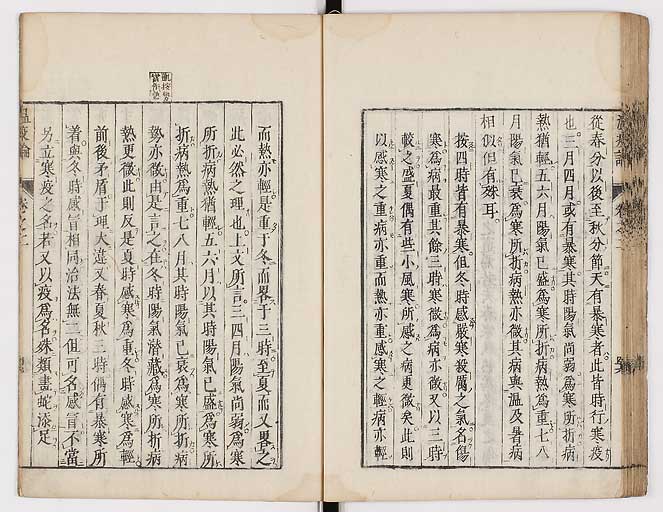 從春分以後至秋分節天有暴寒者此皆時行寒疫
也三月四月或有暴寒其時陽氣尚弱爲寒所折病
熱猶輕五六月陽氣已盛爲寒所折病熱爲重七八
月陽氣已衰爲寒所折病熱亦微其病與溫及暑病
相似但有殊耳
按四時皆有暴寒但冬時感嚴寒殺厲之氣名傷
寒爲病最重其餘三時寒微爲病亦微又以三時
較之盛夏偶有些小風寒所感之病更微矣此則
以感寒之重病亦重而熱亦重感寒之輕病亦輕
而熱亦輕是重于冬而畧于三時至夏而又畧之
此必然之理也上文所言三四月陽氣尚弱爲寒
所折病熱猶輕五六月以其時陽氣已盛爲寒所
折病熱爲重七八月其時陽氣已衰爲寒所折病
勢亦微由是言之在冬時陽氣潛藏爲寒所折病
熱更微此則反是夏時感寒爲重冬時感寒爲輕
前後矛盾于理大違又春夏秋三時偶有暴寒所
着與冬時感冒相同治法無二但可名感冒不當
另立寒疫之名若又以疫爲名殊類畫蛇添足
溫疫論
卷之二